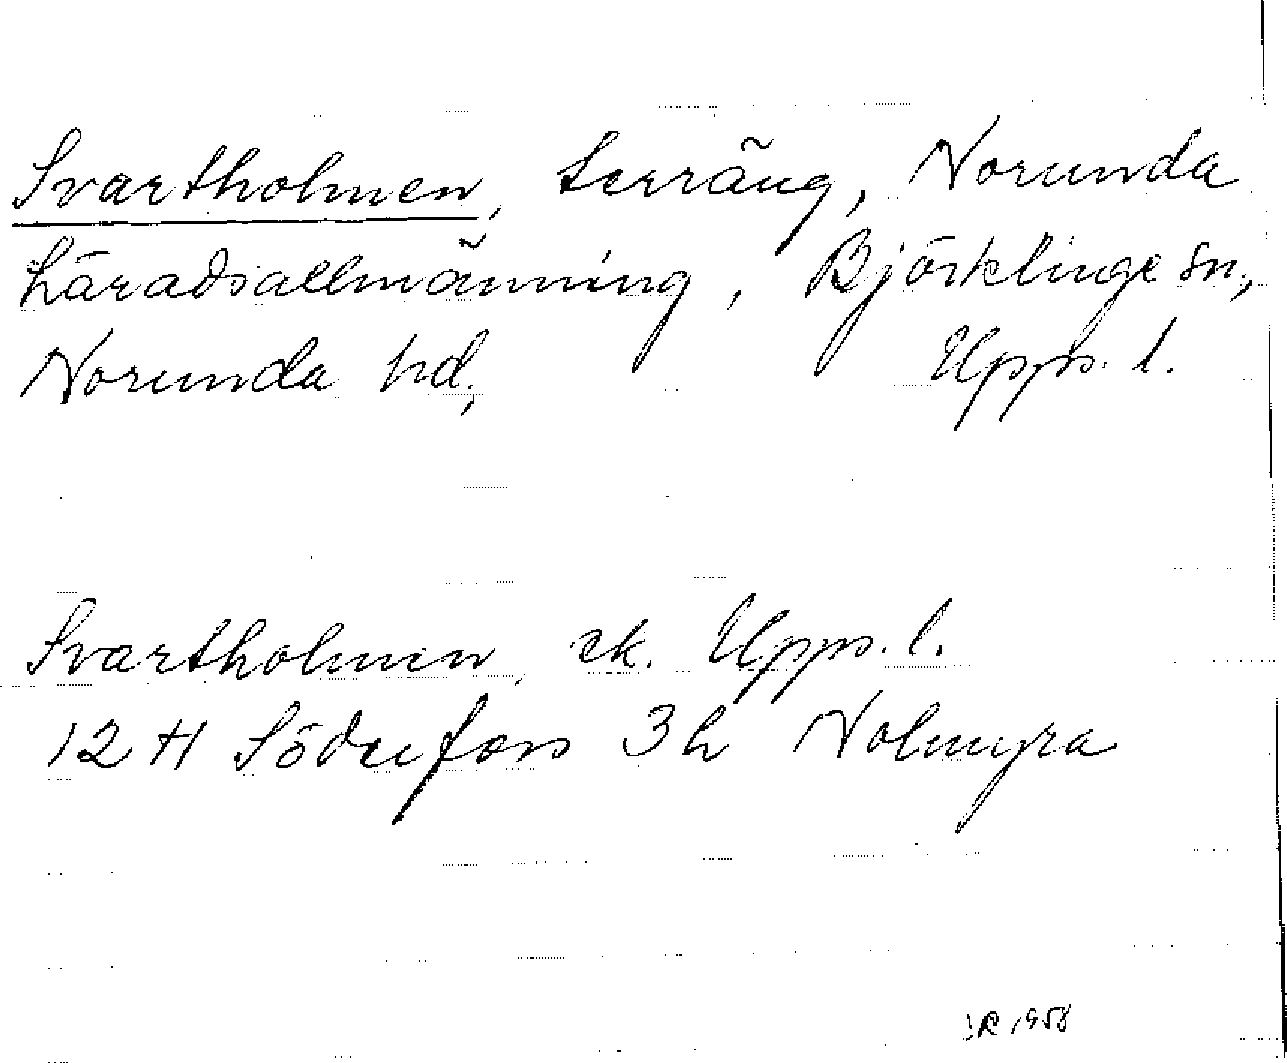 Svartholmen, terräng, Norunda
häradsallmänning, Björklinge sn.,
Norunda hd., Upps. l.
Svartholmen, ek. Upps. l.
12 H Söderfors 3h Nolmyra
JR 1958